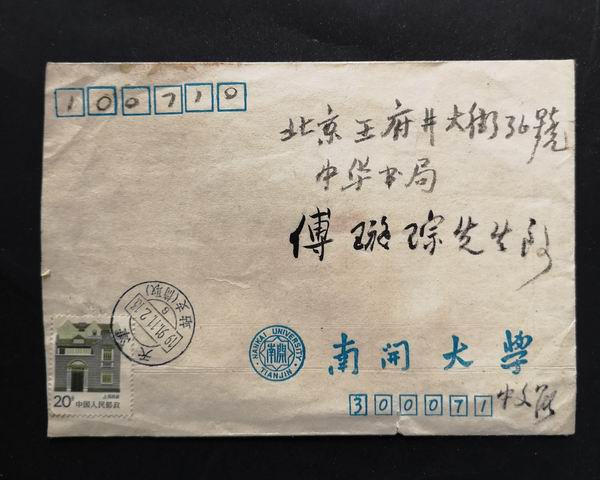 100710
北京王府井大街36号
中华书局
傅璇琮先生
天津
1991.11.2.18
支(信取)
6
上海民居
20分
中国人民邮政
NANKAI UNIVERSITY
南開
TIANJIN
南開大學
300071 中文系